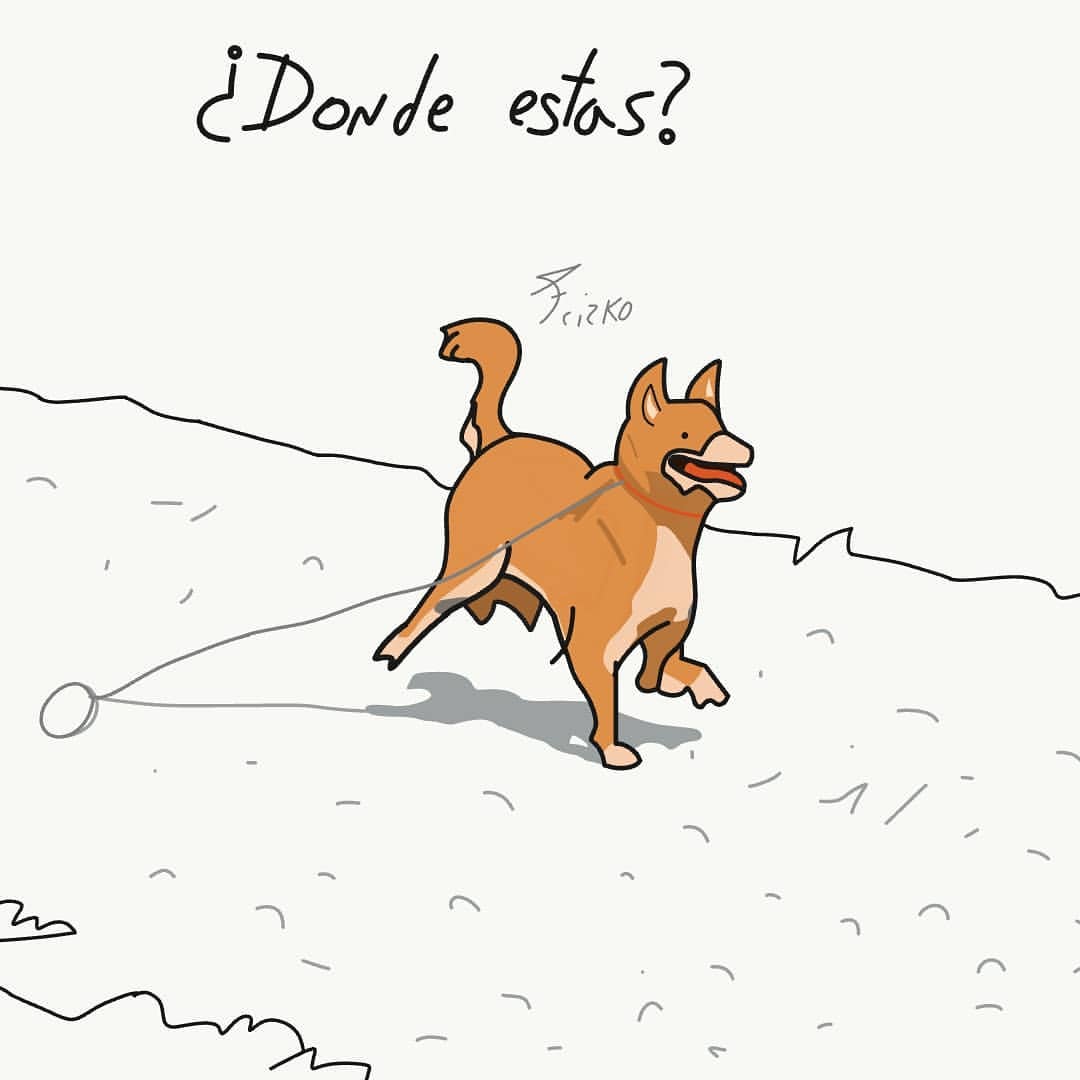 ¿Donde estas?
Fcizko